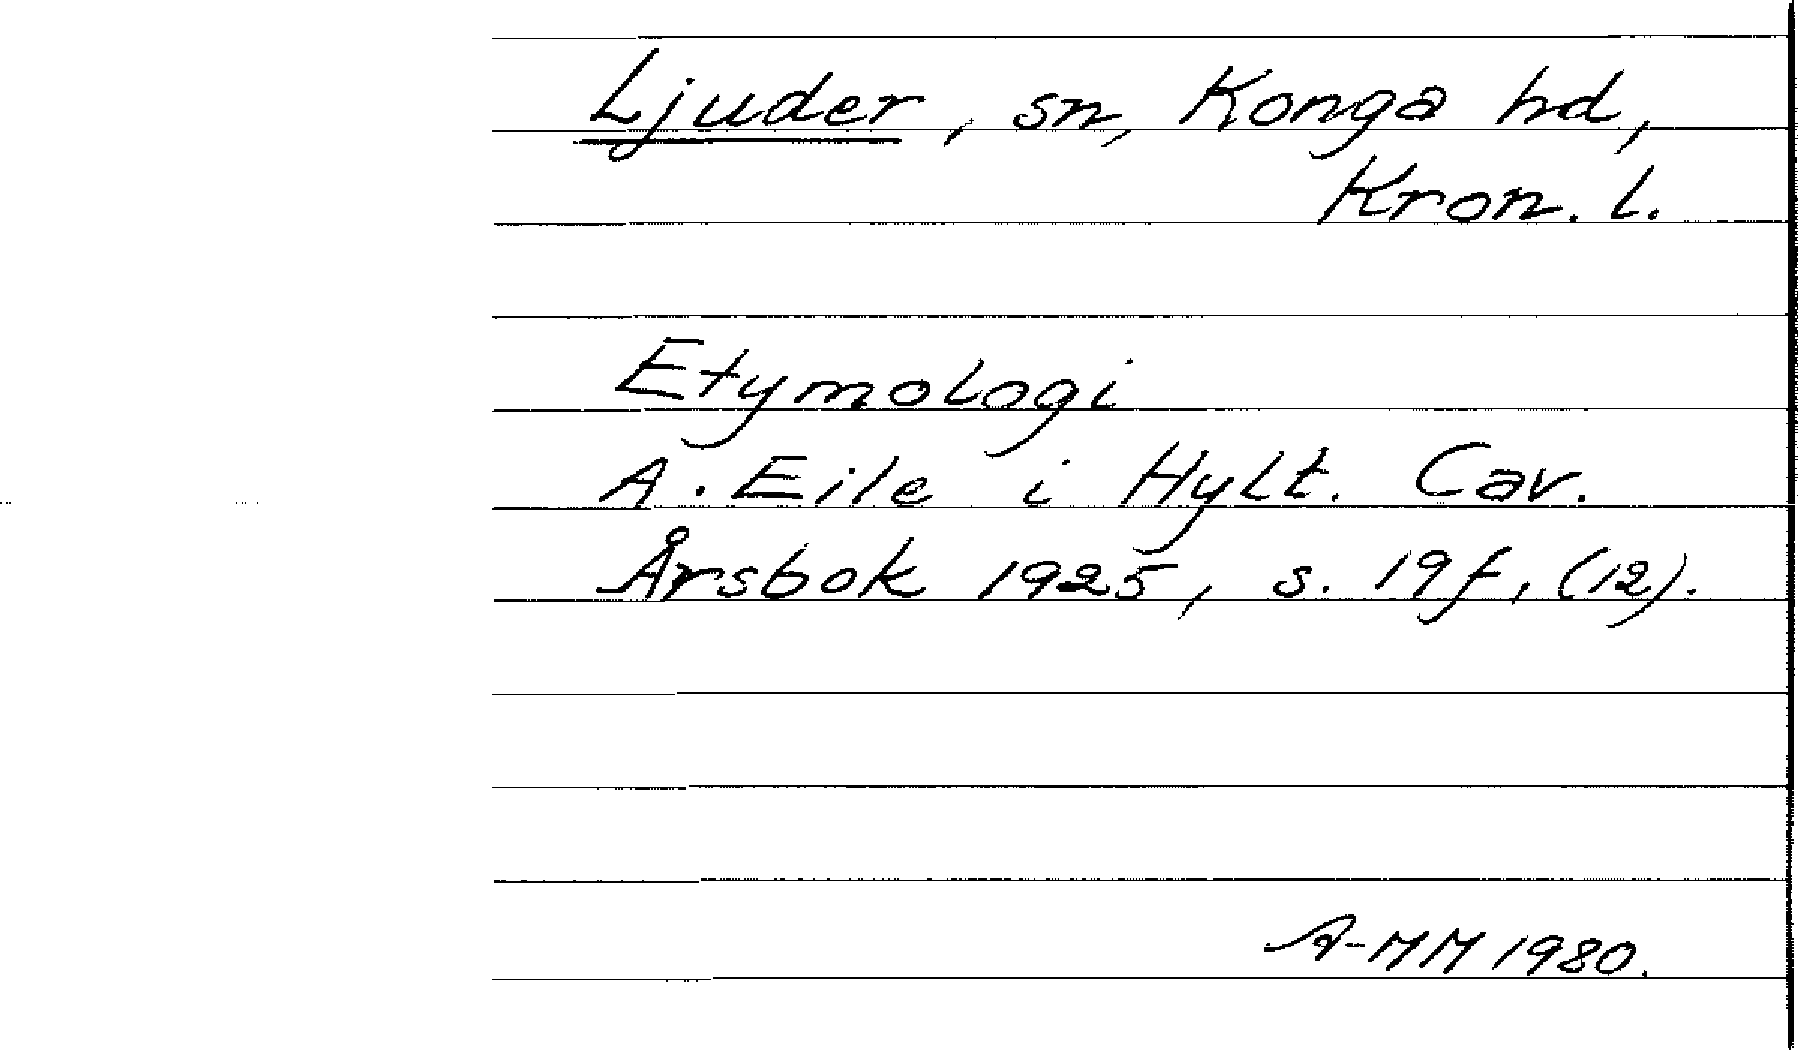 Ljuder, sn, Konga hd,
Kron. l.
Etymologi
A. Eile i Hylt. Cav.
Årsbok 1925, s. 19f, (12).
A-MM 1980.